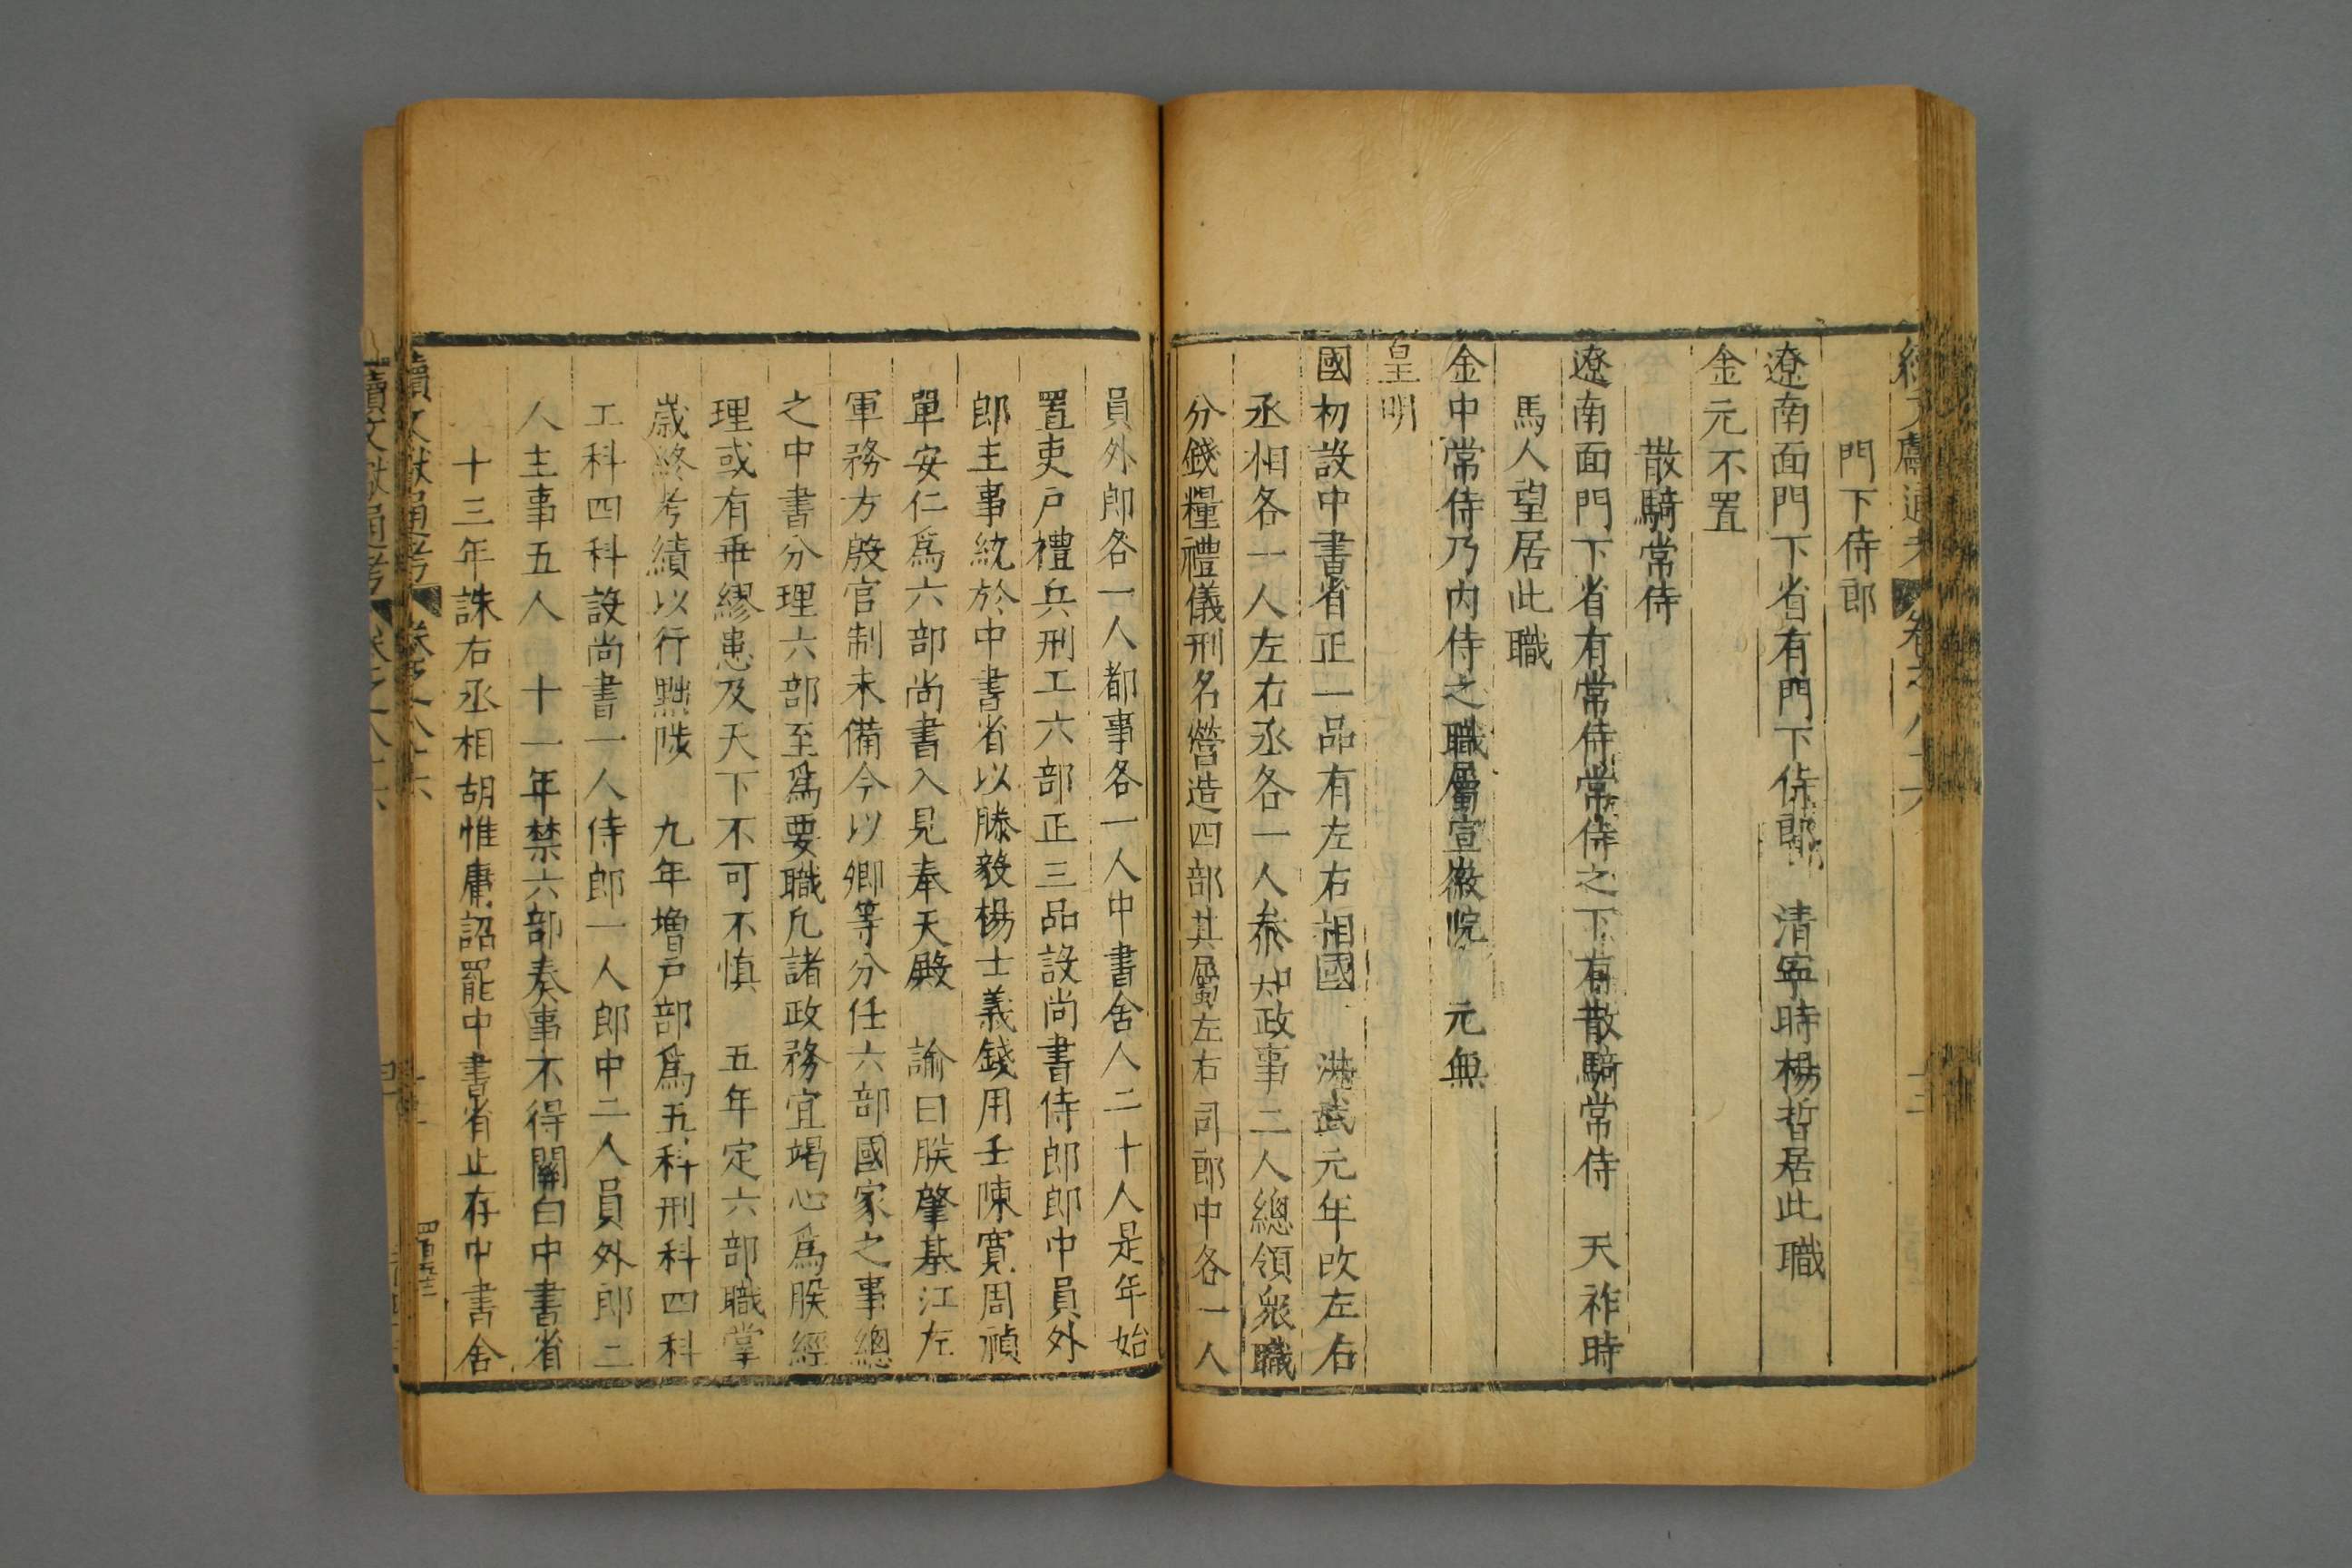 門下侍郎
遼南面門下省有門下侍郎　清寧時楊晳居此職
金元不置
散騎常侍
遼南面門下省有常侍常侍之下有散騎常侍　天祚時
馬人望居此職
金中常侍乃內侍之職屬宣徽院　元無
皇明
國初設中書省正一品有左右相國　洪武元年改左右
丞相各一人左右丞各一人叅知政事二人總領衆職
分錢糧禮儀刑名營造四部其屬左右司郎中各一人
員外郎各一人都事各一人中書舍人二十人是年始
置吏戶禮兵刑工六部正三品設尚書侍郎郎中員外
郎主事統於中書省以滕毅楊士義錢用壬陳寬周禎
單安仁爲六部尚書入見奉天殿　諭曰朕肇基江左
軍務方殷官制未備今以卿等分任六部國家之事總
之中書分理六部至爲要職凡諸政務宜竭心爲朕經
理或有乖繆患及天下不可不慎　五年定六部職掌
歲終考績以行黜陟　九年增戶部爲五科刑科四科
工科四科設尚書一人侍郎一人郎中二人員外郎二
人主事五人　十一年禁六部奏事不得關白中書省
十三年誅右丞相胡惟庸詔罷中書省止存中書舍
續文獻通考 卷之八十六
續文獻通考